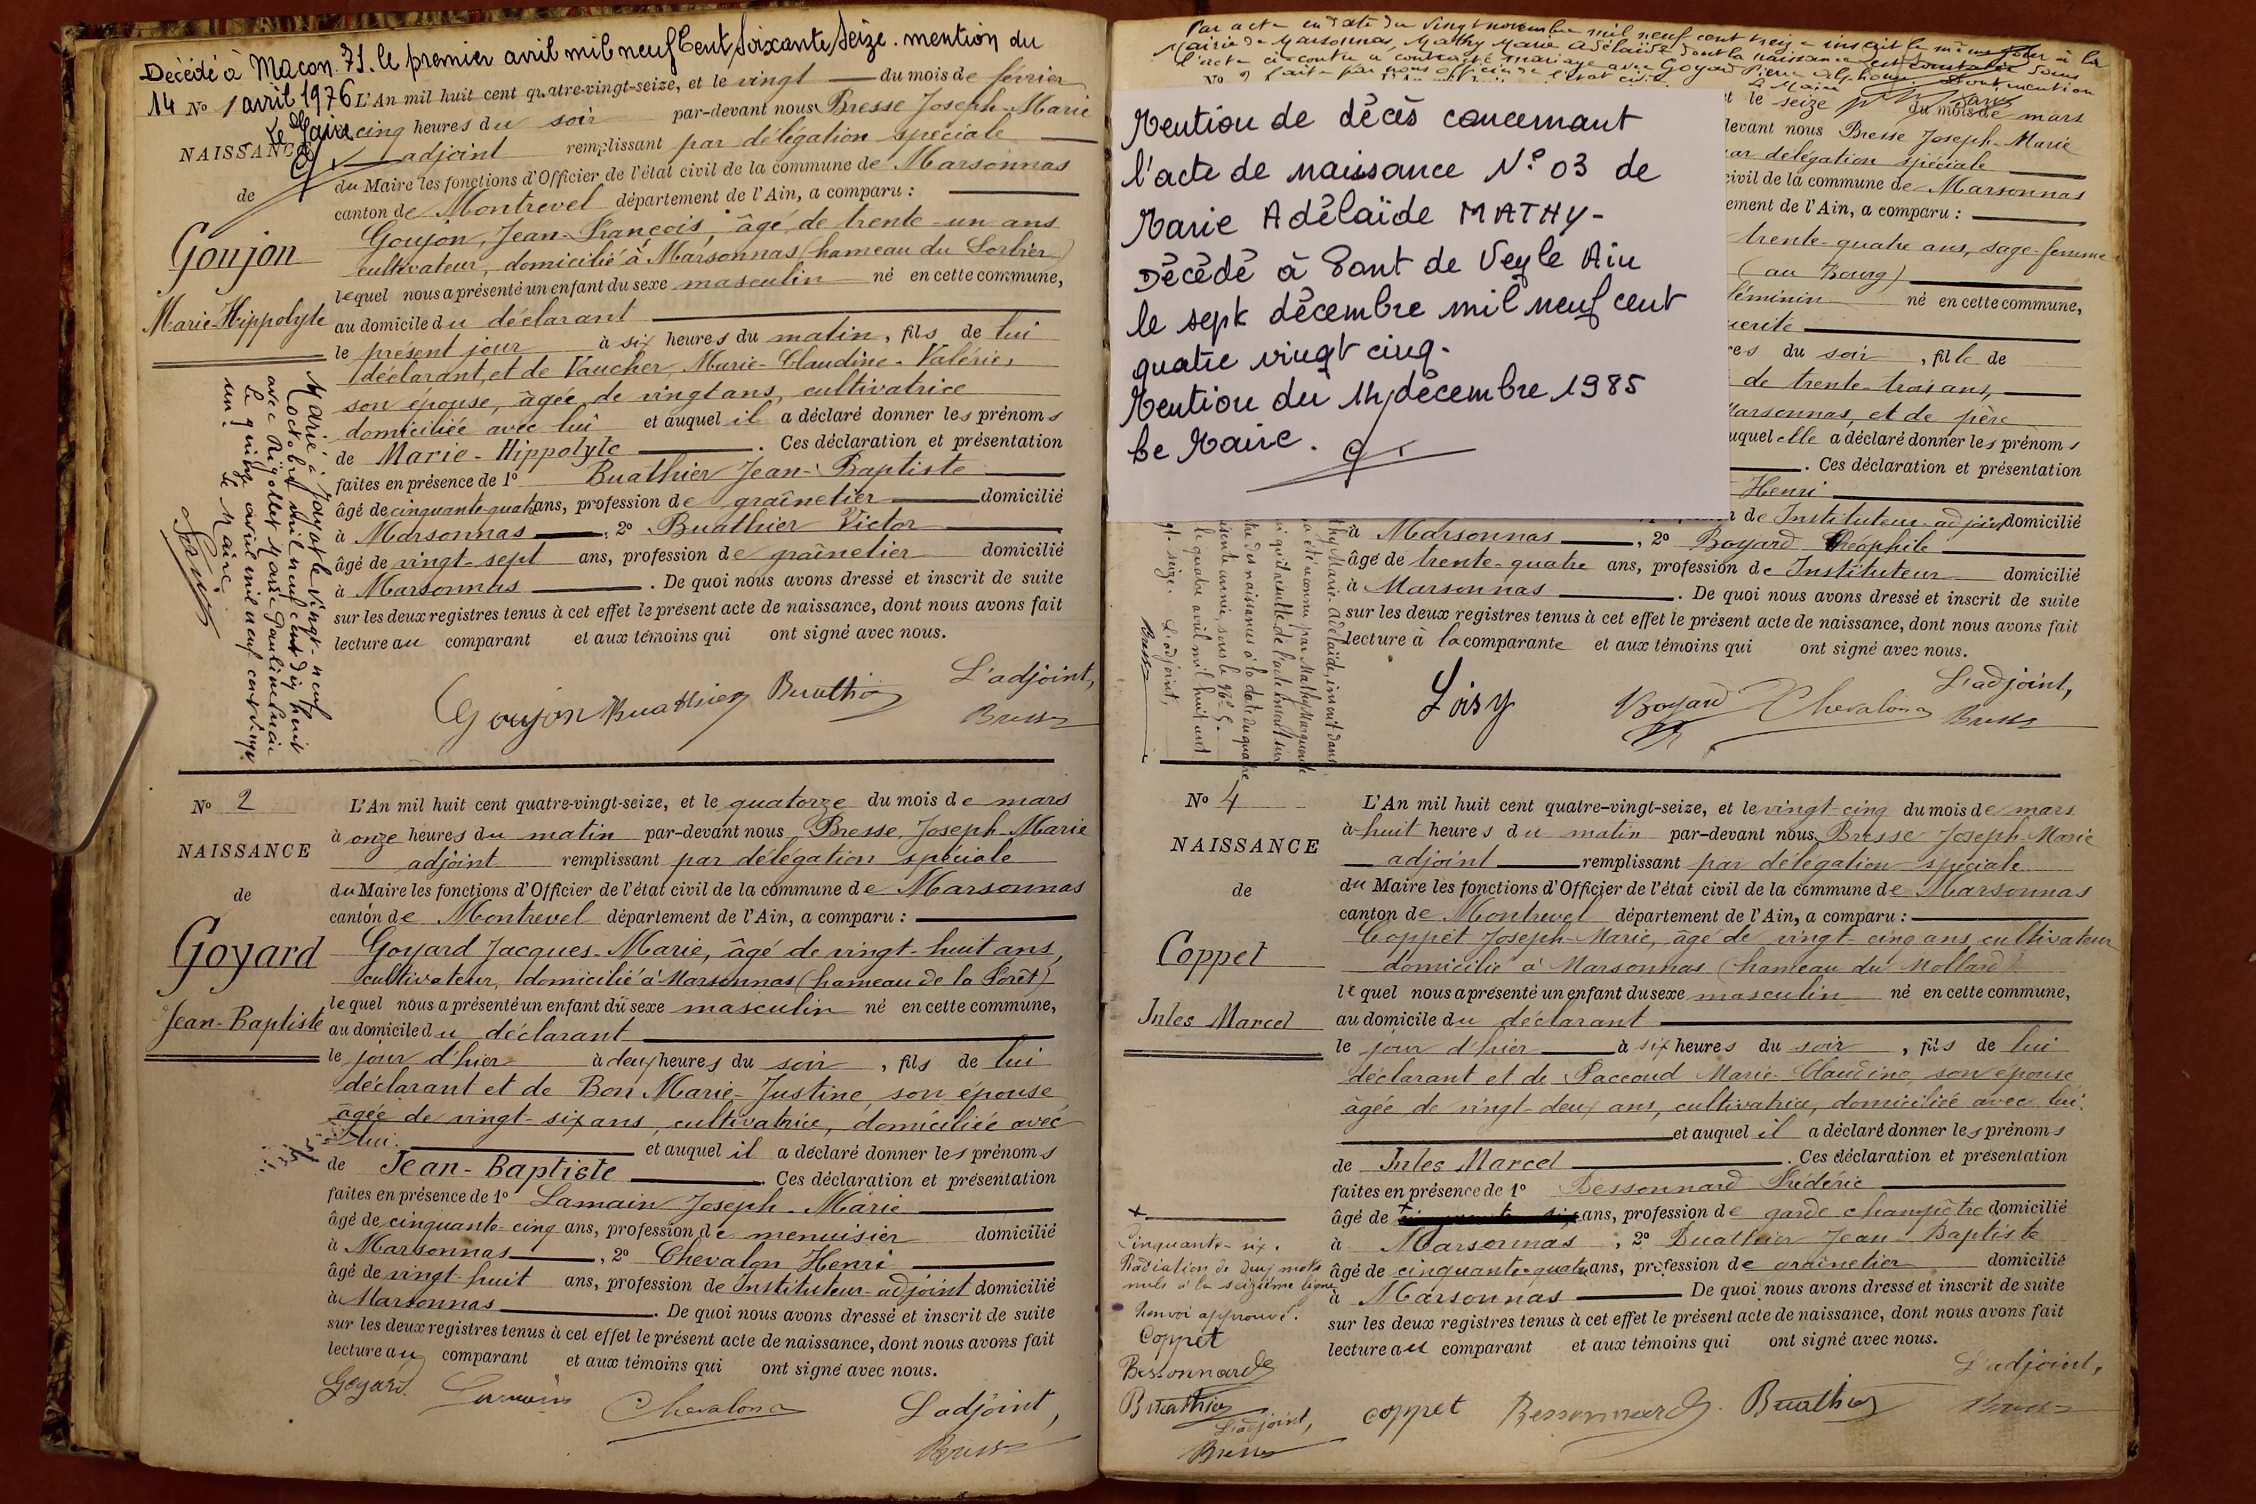 Décédé à Macon. 71. le premier avril mil neuf Cent Soixante Seize. mention du
14 avril 1976
Le Maire
N° 1
NAISSANCE
de
Goujon
Marie-Hippolyte
L'An mil huit cent quatre-vingt-seize, et le vingt du mois de février
à cinq heures du soir par-devant nous Bresse Joseph-Marie
adjoint remplissant par délégation spéciale
du Maire les fonctions d'Officier de l'état civil de la commune de Marsonnas
canton de Montrevel département de l'Ain, a comparu :
Goujon, Jean-François, âgé de trente-un ans
cultivateur, domicilié à Marsonnas (hameau du Sorbier)
lequel nous a présenté un enfant du sexe masculin né en cette commune,
au domicile du déclarant
le présent jour à six heures du matin, fils de lui
déclarant, et de Vaucher, Marie-Claudine-Valérie,
son épouse, âgée de vingt ans, cultivatrice
domiciliée avec lui et auquel il a déclaré donner les prénoms
de Marie-Hippolyte. Ces déclaration et présentation
faites en présence de 1° Buathier Jean-Baptiste
âgé de cinquante-quatre ans, profession de graînetier domicilié
à Marsonnas, 2° Buathier Victor
âgé de vingt-sept ans, profession de graînetier domicilié
à Marsonnas. De quoi nous avons dressé et inscrit de suite
sur les deux registres tenus à cet effet le présent acte de naissance, dont nous avons fait
lecture au comparant et aux témoins qui ont signé avec nous.
L'adjoint,
Goujon Buathier Buathier
Bresse
Marié à Jayat le vingt-neuf
octobre mil neuf cent dix huit
avec Rigollet Marie
Le quinze avril mil neuf cent vingt
un.
Le Maire,
N° 2
NAISSANCE
de
Goyard
Jean-Baptiste
L'An mil huit cent quatre-vingt-seize, et le quatorze du mois de mars
à onze heures du matin par-devant nous Bresse, Joseph-Marie
adjoint remplissant par délégation spéciale
du Maire les fonctions d'Officier de l'état civil de la commune de Marsonnas
canton de Montrevel département de l'Ain, a comparu :
Goyard Jacques-Marie, âgé de vingt-huit ans,
cultivateur, domicilié à Marsonnas (hameau de la Forêt)
lequel nous a présenté un enfant du sexe masculin né en cette commune,
au domicile du déclarant
le jour d'hier à deux heures du soir, fils de lui
déclarant et de Bon Marie-Justine, son épouse
âgée de vingt-six ans, cultivatrice, domiciliée avec
lui. et auquel il a déclaré donner les prénoms
de Jean-Baptiste. Ces déclaration et présentation
faites en présence de 1° Lamain Joseph-Marie
âgé de cinquante-cinq ans, profession de menuisier domicilié
à Marsonnas, 2° Chevalon Henri
âgé de vingt-huit ans, profession de Instituteur-adjoint domicilié
à Marsonnas. De quoi nous avons dressé et inscrit de suite
sur les deux registres tenus à cet effet le présent acte de naissance, dont nous avons fait
lecture au comparant et aux témoins qui ont signé avec nous.
Goyard Lamain Chevalon L'adjoint,
Bresse
Par acte en date du vingt novembre mil neuf cent treize inscrit le même jour à la
Mairie de Marsonnas, Mathy Marie Adélaïde dont la naissance est constatée dans
l'acte ci-contre a contracté mariage avec Goyard Pierre Alphonse. Dont mention
faite par nous officier de l'état civil.
Le Maire
Mention de décès concernant
l'acte de naissance N° 03 de
Marie Adélaïde MATHY-
Décédé à Pont de Veyle Ain
le sept décembre mil neuf cent
quatre vingt cinq.
Mention du 14 décembre 1985
Le Maire.
et le seize du mois de mars
devant nous Bresse Joseph-Marie
par délégation spéciale
civil de la commune de Marsonnas
ement de l'Ain, a comparu :
trente-quatre ans, sage-femme
(au Bourg)
féminin né en cette commune,
uerite
res du soir, fille de
de trente-trois ans,
Marsonnas, et de père
uquel elle a déclaré donner les prénoms
. Ces déclaration et présentation
Henri
n de Instituteur-adjoint domicilié
à Marsonnas, 2° Boyard Théophile
âgé de trente-quatre ans, profession de Instituteur domicilié
à Marsonnas. De quoi nous avons dressé et inscrit de suite
sur les deux registres tenus à cet effet le présent acte de naissance, dont nous avons fait
lecture à la comparante et aux témoins qui ont signé avec nous.
L'adjoint,
Loisy Boyard Chevalon Bresse
thy Marie-Adélaïde, inscrit dans
a été reconnue par Mathy Marguerite
i qu'il résulte de l'acte inscrit sur
tre des naissances à la date du quatre
sente année, sous le N° 5.
le quatre avril mil huit cent
gt-seize. L'adjoint,
Bresse
N° 4
NAISSANCE
de
Coppet
Jules Marcel
L'An mil huit cent quatre-vingt-seize, et le vingt-cinq du mois de mars
à huit heures du matin par-devant nous Bresse Joseph-Marie
adjoint remplissant par délégation spéciale
du Maire les fonctions d'Officier de l'état civil de la commune de Marsonnas
canton de Montrevel département de l'Ain, a comparu :
Coppet Joseph-Marie, âgé de vingt-cinq ans, cultivateur
domicilié à Marsonnas (hameau du Mollard)
lequel nous a présenté un enfant du sexe masculin né en cette commune,
au domicile du déclarant
le jour d'hier à six heures du soir, fils de lui
déclarant et de Paccoud Marie-Claudine, son épouse
âgée de vingt-deux ans, cultivatrice, domiciliée avec lui.
et auquel il a déclaré donner les prénoms
de Jules Marcel. Ces déclaration et présentation
faites en présence de 1° Bessonnard Frédéric
âgé de ans, profession de garde champêtre domicilié
à Marsonnas, 2° Buathier Jean-Baptiste
âgé de cinquante-quatre ans, profession de graînetier domicilié
à Marsonnas De quoi nous avons dressé et inscrit de suite
sur les deux registres tenus à cet effet le présent acte de naissance, dont nous avons fait
lecture au comparant et aux témoins qui ont signé avec nous.
L'adjoint,
coppet Bessonnard Buathier Bresse
Cinquante-six.
Radiation de deux mots
nuls à la seizième ligne
Renvoi approuvé.
Coppet
Bessonnard
Buathier
L'adjoint,
Bresse